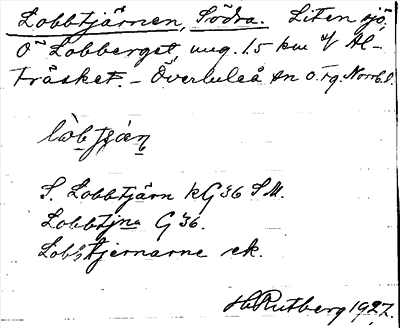 Lobbtjärnen, Södra. Liten sjö
O Lobberget ung. 1.5 km v/ Al-
träsket. - Överluleå sn o. tg. Norrb. l.
lòbtjæn
S. Lobbtjärn kG 36 S.M.
Lobbtjna G 36.
Lobbtjernarne ek.
H. Rutberg 1927.